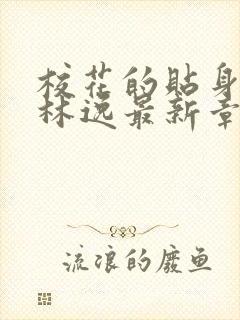 校花的贴身
林逸最新章
流浪的废鱼